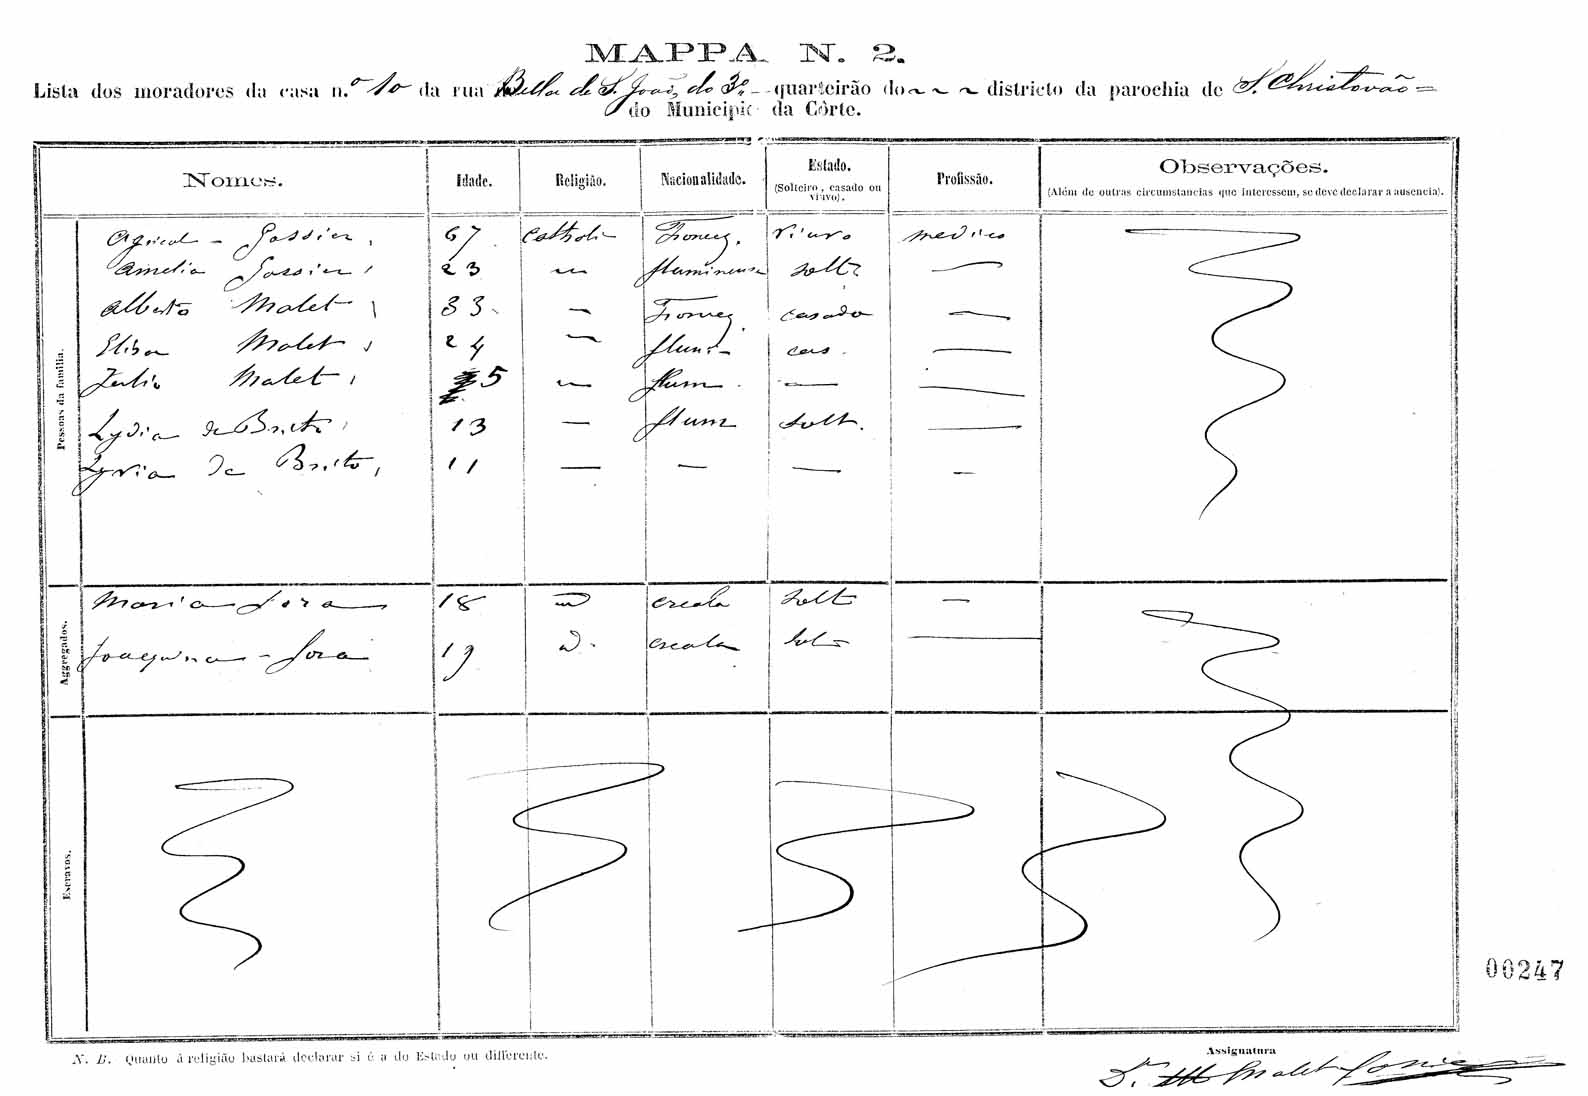 MAPPA N. 2.
Lista dos moradores da casa n.º 10 da rua Bella de S. João, do 3º quarteirão do ~ ~ ~ districto da parochia de S. Christovão =
do Municipio da Côrte.
Nomes. Idade. Religião. Nacionalidade. Estado. (Solteiro, casado ou viuvo). Profissão. Observações. (Além de outras circumstancias que interessem, se deve declarar a ausencia).
Pessoas da familia.
67 Catholi viuvo medico
Amelia 23 fluminense solt
Alberto Malet 33 casado
Elisa Malet 24 flumi cas.
Julio Malet 5 flum
Lydia de Britto 13 flum solt.
de Britto, 11
Aggregados.
Maria 18 solt
Joaquina 19 solt
Escravos.
00247
N. B. Quanto á religião bastará declarar si é a do Estado ou differente.
Assignatura
Dr. Malet